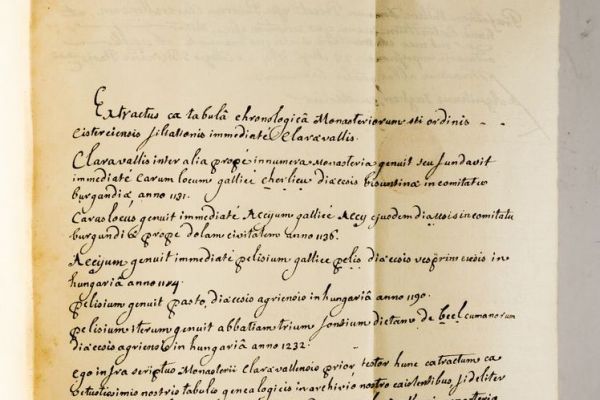 Extractus ex tabulâ chronologicâ Monasteriorum sti ordinis - -
Cisterciensis filiationis immediatè Claraevallis.
Claravallis inter alia propè innumera Monasteria genuit seu fundavit
immediatè carum locum gallicè cherlieu diæcesis bisuntinæ in comitatu
burgundiæ, anno 1131.
Carus locus genuit immediatè Acciyum gallicè Accy ejusdem diæcesis in comitatu
burgundiæ propè dolam civitatem anno 1136.
Acciyum genuit immediatè pelisium gallicè pelis diæcesis vesprimiensis in
hungariâ anno 1184.
pelisium genuit pasto, diæcesis agriensis in hungariâ anno 1190.
pelisium iterum genuit abbatiam trium fontium dictam de beel cumanorum
diæcesis agriensis in hungariâ anno 1232.
ego infra scriptus Monasterii Claravallensis prior testor hunc extractum ex
vetustissimis nostris tabulis genealogicis in archivio nostro existentibus, fideliter